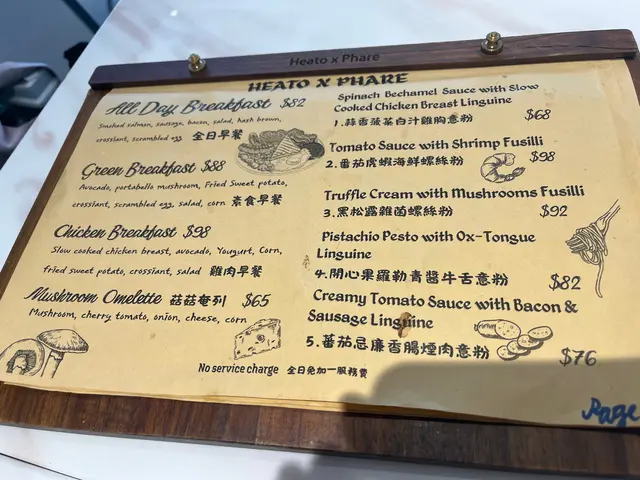 Heato x Phare
HEATO X PHARE
All Day Breakfast $82
Smoked salmon, sausage, bacon, salad, hash brown,
crossiant, scrambled egg 全日早餐
Green Breakfast $88
Avocado, portabello mushroom, Fried Sweet potato,
crossiant, scrambled egg, salad, corn 素食早餐
Chicken Breakfast $98
Slow cooked chicken breast, avocado, Yougurt, Corn,
fried sweet potato, crossiant, salad 雞肉早餐
Mushroom Omelette 菇菇奄列 $65
Mushroom, cherry tomato, onion, cheese, corn
Spinach Bechamel Sauce with Slow
Cooked Chicken Breast Linguine
1.蒜香菠菜白汁雞胸意粉 $68
Tomato Sauce with Shrimp Fusilli
2.番茄虎蝦海鮮螺絲粉 $98
Truffle Cream with Mushrooms Fusilli
3.黑松露雜菌螺絲粉 $92
Pistachio Pesto with Ox-Tongue
Linguine
4.開心果羅勒青醬牛舌意粉 $82
Creamy Tomato Sauce with Bacon &
Sausage Linguine
5.蕃茄忌廉香腸煙肉意粉 $76
No service charge 全日免加一服務費
Page